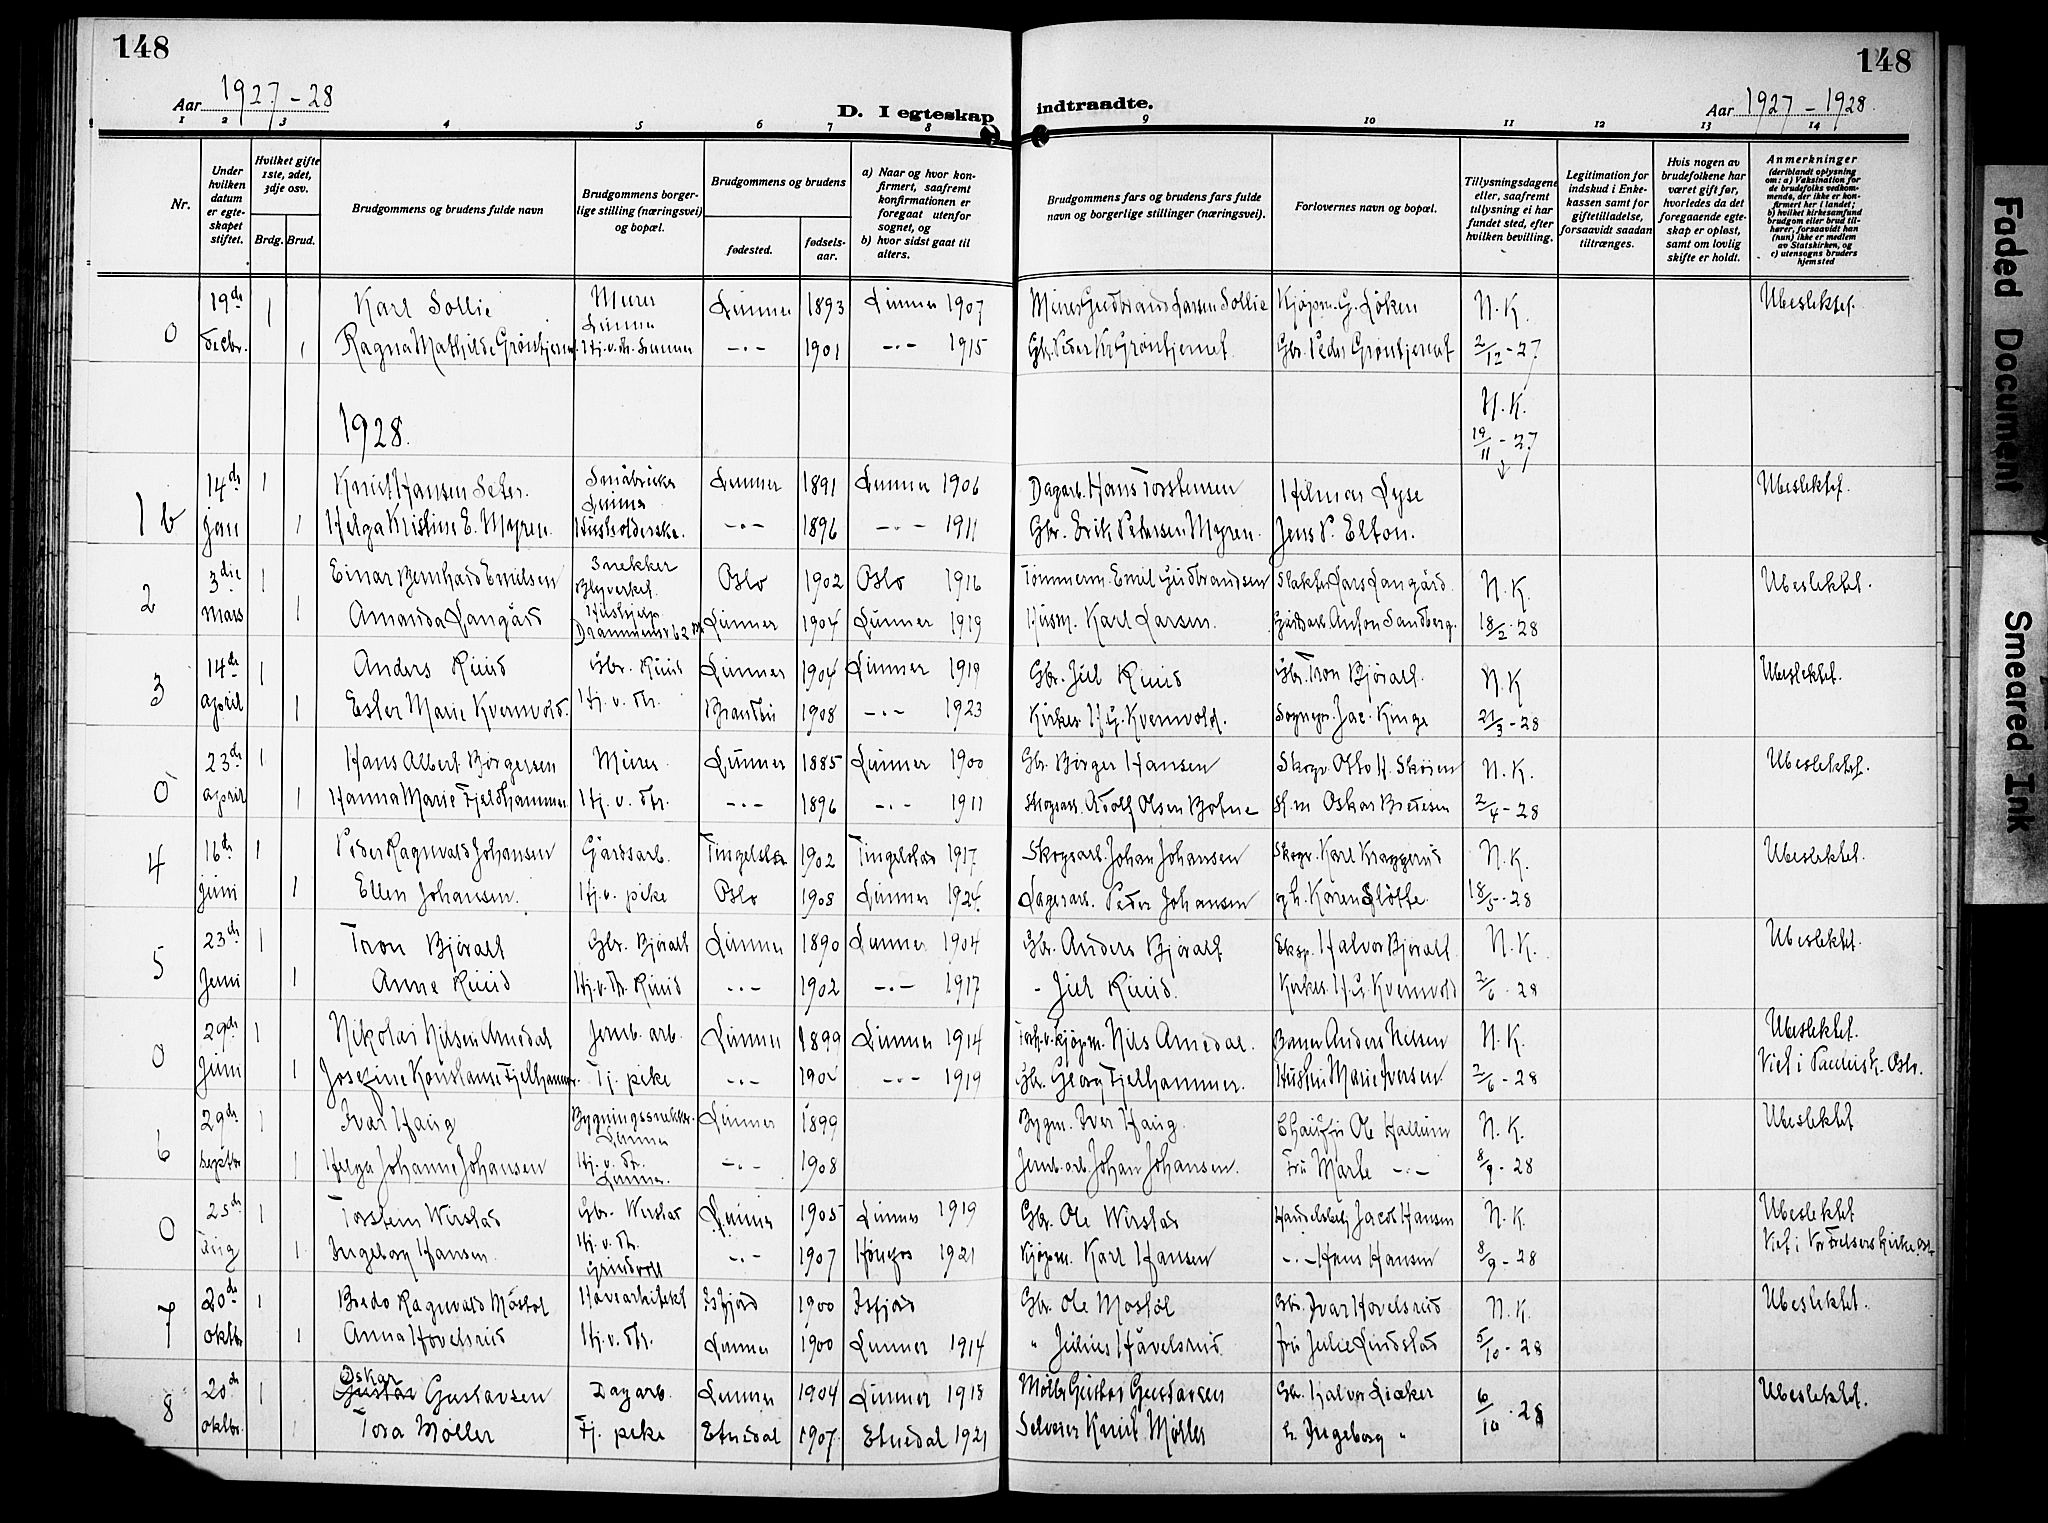 148
148
Aar 1927-28
D. I egteskap indtraadte.
Aar 1927-1928.
1 2 3 4 5 6 7 8 9 10 11 12 13 14
Nr.
Under hvilken datum er egteskapet stiftet.
Hvilket gifte 1ste, 2det, 3dje osv.
Brdg. Brud.
Brudgommens og brudens fulde navn
Brudgommens borgerlige stilling (næringsvei) og bopæl.
Brudgommens og brudens
fødested. fødselsaar.
a) Naar og hvor konfirmert, saafremt konfirmationen er foregaat utenfor sognet, og
b) hvor sidst gaat til alters.
Brudgommens fars og brudens fars fulde navn og borgerlige stillinger (næringsvei).
Forlovernes navn og bopæl.
Tillysningsdagene eller, saafremt tillysning ei har fundet sted, efter hvilken bevilling.
Legitimation for indskud i Enkekassen samt for giftetilladelse, forsaavidt saadan tiltrænges.
Hvis nogen av brudefolkene har været gift før, hvorledes da det foregaaende egteskap er opløst, samt om lovlig skifte er holdt.
Anmerkninger (deriblandt oplysning om: a) Vaksination for de brudefolks vedkommende, der ikke er konfirmert her i landet; b) hvilket kirkesamfund brudgom eller brud tilhører, forsaavidt han (hun) ikke er medlem av Statskirken, og c) utensogns bruders hjemsted
0 19de 1 Karl Sollie Murer Lunner Lunner 1893 Lunner 1907 Murer Gudbrand Larsen Sollie Kjøpm. G. Løken N.K. Ubeslektet.
Decbr. 1 Ragna Mathilde Grøntjernet Hj.v.Dr. Lunner -"- 1901 -"- 1915 Gbr. Peder K. Grøntjernet Gbr. Peder Grøntjernet 2/12-27
1928.
N.K. 19/11-27
1 b 14de 1 Knut Hansen Seter. Småbruker Lunner Lunner 1891 Lunner 1906 Dagarb. Hans Torstensen Hilmar Lyse Ubeslektet.
jan 1 Helga Kristine E. Myren. Husholderske. -"- 1896 -"- 1911 Gbr. Erik Pedersen Myren. Jens P. Elton.
2 3die 1 Einar Bernhard Emilsen Snekker Blyverket Oslo 1902 Oslo 1916 Tømmerm. Emil Gudbrandsen Slakter Lars Langård. N.K. Ubeslektet.
mars 1 Amanda Langård Drammensv. 62 Lunner 1904 Lunner 1919 Husm. Karl Larsen. Gårdsarb. Anton Sandberg. 18/2-28
3 14de 1 Anders Ruud Gbr. Ruud Lunner 1904 Lunner 1919 Gbr. Juel Ruud Gbr. Tron Bjøralt. N.K Ubeslektet.
april 1 Ester Marie Kvernvold. Hj.v.Dr. Brandbu 1908 -"- 1923 Kirkes. H.G. Kvernvold. Sognepr. Jac. Kinge 21/3-28
0 23de 1 Hans Albert Børgersen Murer. Lunner 1885 Lunner 1900 Gbr. Børger Hansen Skogv. Otto H. Skøien N.K. Ubeslektet.
april 1 Hanna Marie Fjeldhammer Hj.v.Dr. -"- 1896 -"- 1911 Skogsarb. Adolf Olsen Botne Oskar Bredesen 2/4-28
4 16de 1 Peder Ragnvald Johansen Gårdsarb. Tingelstad 1902 Tingelstad 1917 Skogsarb. Johan Johansen Skogv. Karl Kraggerud N.K. Ubeslektet.
Juni 1 Ellen Johansen. Hj.v. pike Oslo 1908 Lunner 1924. Lagerarb. Peder Johansen Karen Sløtte. 18/5-28
5 23de 1 Tron Bjøralt Gbr. Bjøralt Lunner 1890 Lunner 1904 Gbr. Anders Bjøralt Eksp. Halvor Bjøralt. N.K. Ubeslektet.
Juni 1 Anne Ruud Hj.v.Dr. Ruud -"- 1902 -"- 1917 - Juel Ruud. Kirkes. H.G. Kvernvold 2/6-28
0 29de 1 Nikolai Nilsen Amedal Jernb. arb. Lunner 1899 Lunner 1914 Forh.v. kjøpm. Nils Amedal. Anders Nilsen N.K. Ubeslektet.
Juni 1 Josefine Konstanse Fjelhammer. Tj. pike -"- -"- 1919 Gbr. Georg Fjelhammer. Hustru Marie Iversen 2/6-28 Viet i Paulusk. Oslo.
6 29de 1 Ivar Haug Bygningssnekker. Lunner Lunner 1899 Bygm. Iver Haug. Chauffør Ole Hallum N.K. Ubeslektet
septbr 1 Helga Johanne Johansen Hj.v.Dr. Lunner. -"- 1908 Jernb. arb. Johan Johansen. Fru Marte -"- 8/9-28
0 25de 1 Torstein Wirstad Gbr. Wirstad Lunner 1905 Lunner 1919 Gbr. Ole Wirstad Handelsbetj. Jacob Hansen N.K. Ubeslektet
1 Ingeborg Hansen. Hj.v.Dr. Grindvoll -"- 1907 Hønefos 1921 Kjøpm. Karl Hansen -"- Hans Hansen 8/9-28 Viet i Vor Frelsers Kirke. Osl-
7 20de 1 Bredo Ragnvald Mostøl Havearkitekt Isfjord 1900 Isfjord Gbr. Ole Mostøl Gbr. Ivar Hovelsrud N.K. Ubeslektet.
oktbr 1 Anna Hovelsrud Hj.v.Dr. Lunner 1900 Lunner 1914 " Julius Håvelsrud Fru Julie Lindstad 5/10-28
8 20de 1 Oskar Gustav Gustavsen Dagarb. Lunner 1904 Lunner 1918 Møller Gustav Gustavsen Gbr. Halvor Lieker 6/10-28 Ubeslektet.
oktbr. 1 Tora Møller Tj. pike Etnedal 1907. Etnedal 1921 Selveier Knut Møller Ingeborg "
Faded Document
Smeared Ink